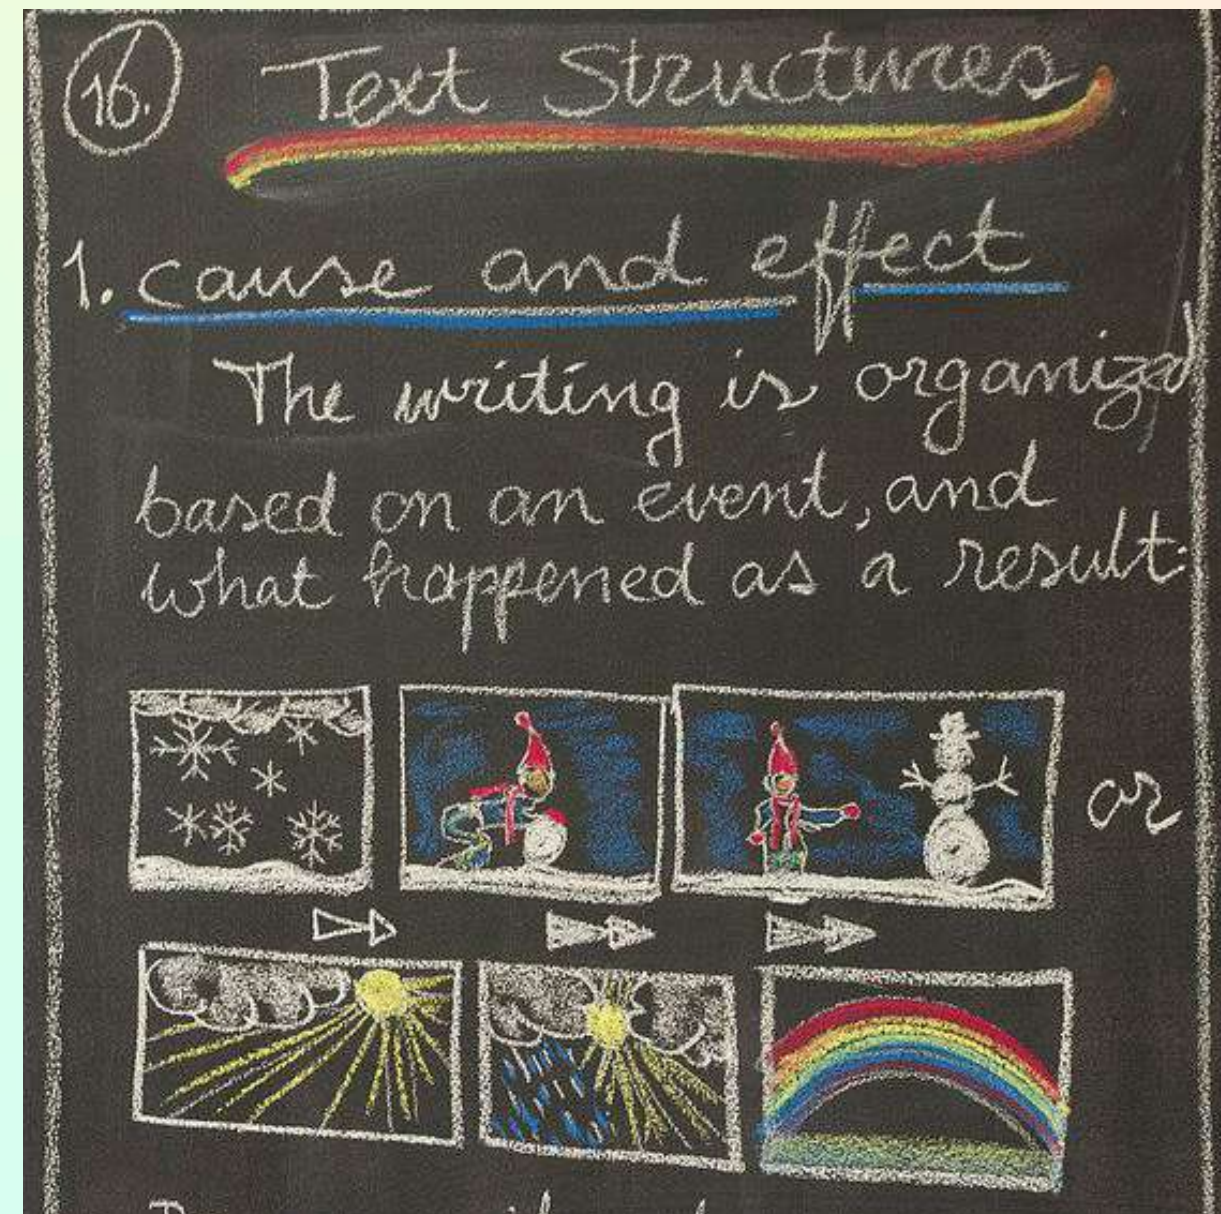 16.
Text Structures
1. cause and effect
The writing is organized
based on an event, and
what happened as a result:
or